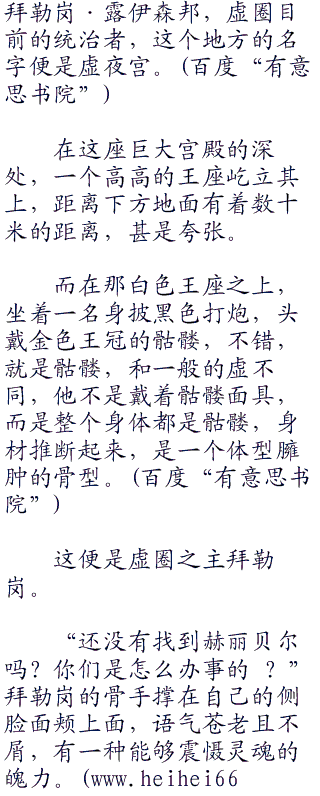 拜勒岗·露伊森邦，虚圈目
前的统治者，这个地方的名
字便是虚夜宫。(百度“有意
思书院”)
在这座巨大宫殿的深
处，一个高高的王座屹立其
上，距离下方地面有着数十
米的距离，甚是夸张。
而在那白色王座之上，
坐着一名身披黑色打炮，头
戴金色王冠的骷髅，不错，
就是骷髅，和一般的虚不
同，他不是戴着骷髅面具，
而是整个身体都是骷髅，身
材推断起来，是一个体型臃
肿的骨型。(百度“有意思书
院”)
这便是虚圈之主拜勒
岗。
“还没有找到赫丽贝尔
吗？你们是怎么办事的 ？”
拜勒岗的骨手撑在自己的侧
脸面颊上面，语气苍老且不
屑，有一种能够震慑灵魂的
魄力。(www.heihei66